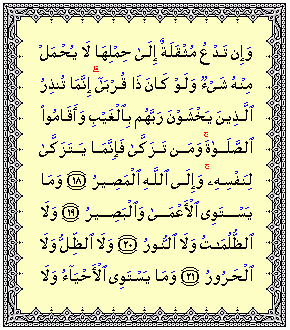 وَإِن تَدْعُ مُثْقَلَةٌ إِلَىٰ حِمْلِهَا لَا يُحْمَلْ
مِنْهُ شَىْءٌ وَلَوْ كَانَ ذَا قُرْبَىٰٓ ۗ إِنَّمَا تُنذِرُ
ٱلَّذِينَ يَخْشَوْنَ رَبَّهُم بِٱلْغَيْبِ وَأَقَامُوا۟
ٱلصَّلَوٰةَ ۚ وَمَن تَزَكَّىٰ فَإِنَّمَا يَتَزَكَّىٰ
لِنَفْسِهِۦ ۚ وَإِلَى ٱللَّهِ ٱلْمَصِيرُ ﴿١٨﴾ وَمَا
يَسْتَوِى ٱلْأَعْمَىٰ وَٱلْبَصِيرُ ﴿١٩﴾ وَلَا
ٱلظُّلُمَٰتُ وَلَا ٱلنُّورُ ﴿٢٠﴾ وَلَا ٱلظِّلُّ وَلَا
ٱلْحَرُورُ ﴿٢١﴾ وَمَا يَسْتَوِى ٱلْأَحْيَآءُ وَلَا